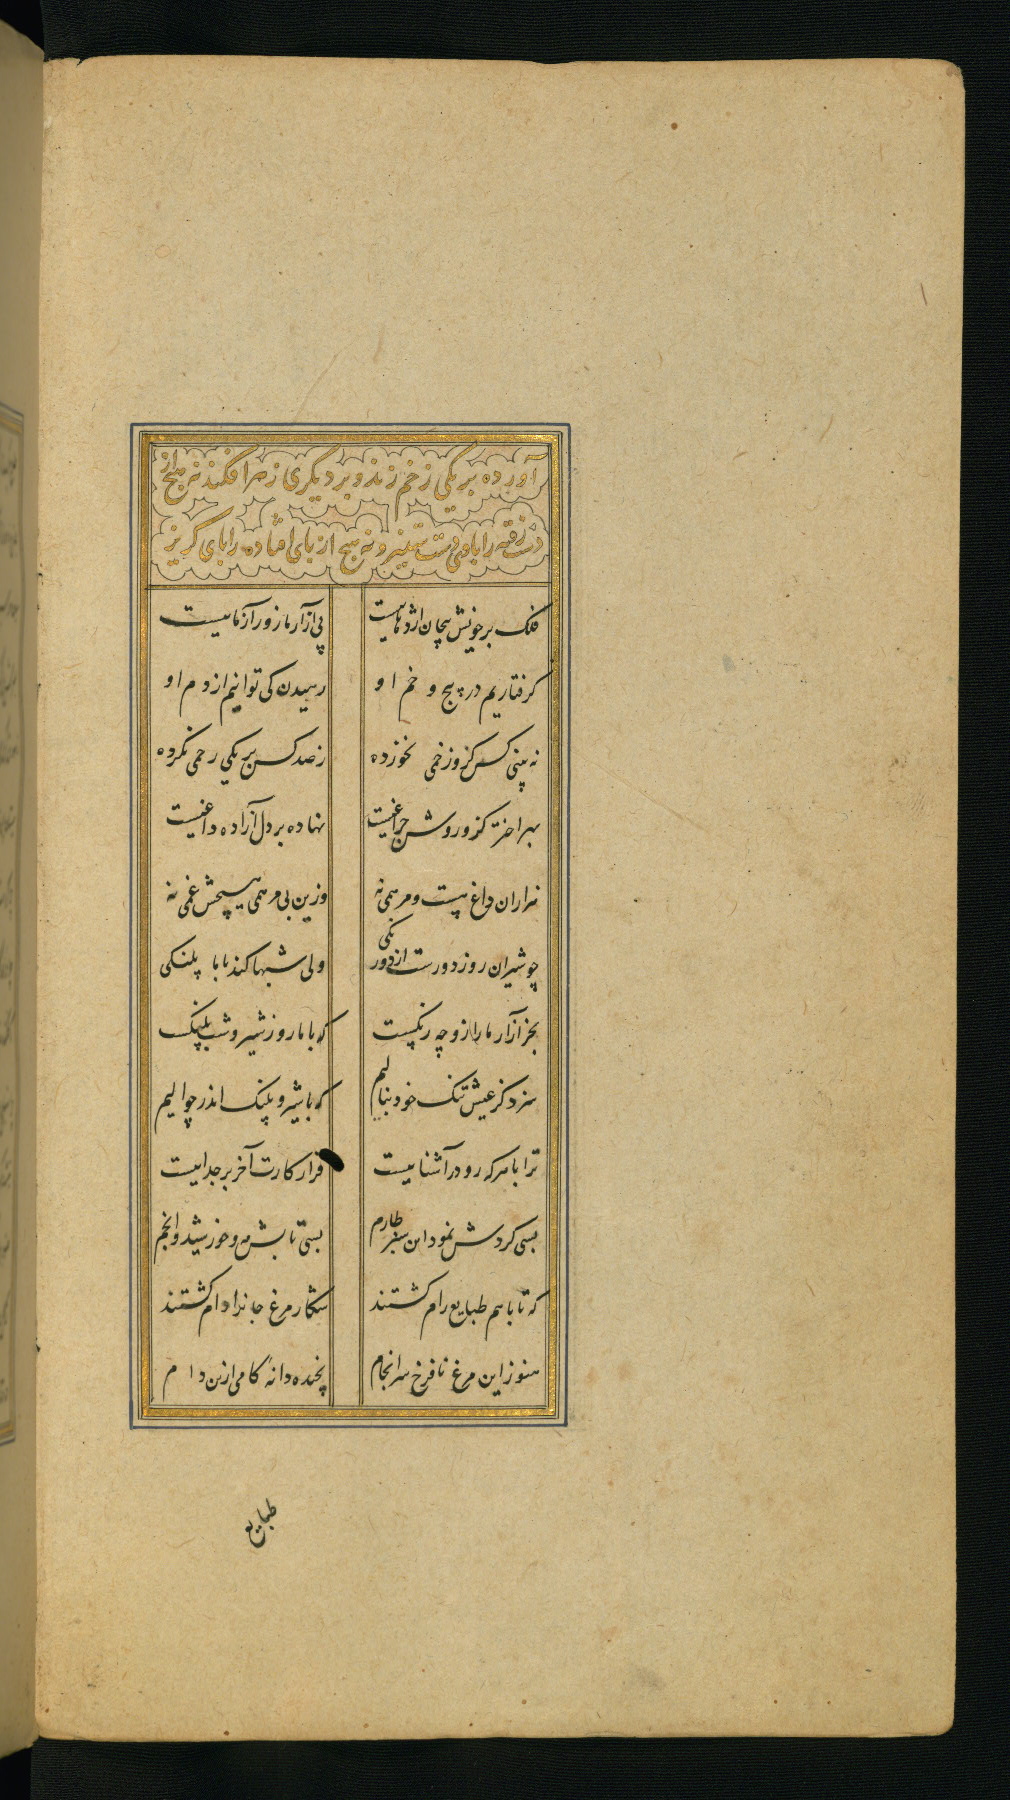 آورده بر یکی زخم زند و بر دیگری زهر افکند نه هیچ از
دست رفته را با وی دست ستیز و نه هیچ از پای افتاده را پای گریز
فلک بر خویش پیچان اژدهاییست پی آزار ما زورآزماییست
گرفتاریم در پیچ و خم او رهیدن کی توانیم از دم او
نه بینی کس کزو زخمی نخورده ز صد کس بر یکی رحمی نکرده
بهر اختر کزو روشن چراغیست نهاده بر دل آزاده داغیست
هزاران داغ هست و مرهمی نه وزین بی مرهمی هیچش غمی نه
چو شیران روز دورست از دورنگی ولی شبها کند با ما پلنگی
بجز آزار ما را زو چه رنگیست که با ما روز شیر و شب پلنگیست
سزد کز عیش تنگ خود بنالیم که با شیر و پلنگ اندر جوالیم
ترا با هر که رو در آشناییست قرار کارت آخر بر جداییست
بسی گردش نمود این سبز طارم بسی تابش مه و خورشید و انجم
که تا با هم طبایع رام گشتند شکار مرغ جانرا دام گشتند
هنوز این مرغ نافرخ سرانجام نخنده دانه کامی ازین دام
طبایع